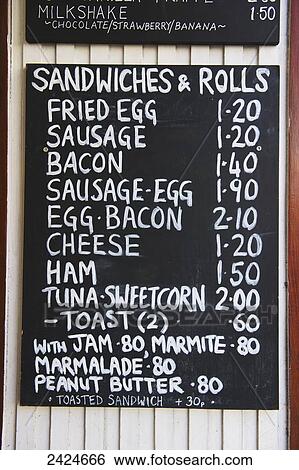 MILKSHAKE 1·50
~CHOCOLATE/STRAWBERRY/BANANA~
SANDWICHES & ROLLS
FRIED EGG 1·20
SAUSAGE 1·20
BACON 1·40
SAUSAGE·EGG 1·90
EGG·BACON 2·10
CHEESE 1·20
HAM 1·50
TUNA·SWEETCORN 2·00
TOAST (2) ·60
WITH JAM·80, MARMITE·80
MARMALADE·80
PEANUT BUTTER·80
·TOASTED SANDWICH +30p·
2424666 www.fotosearch.com